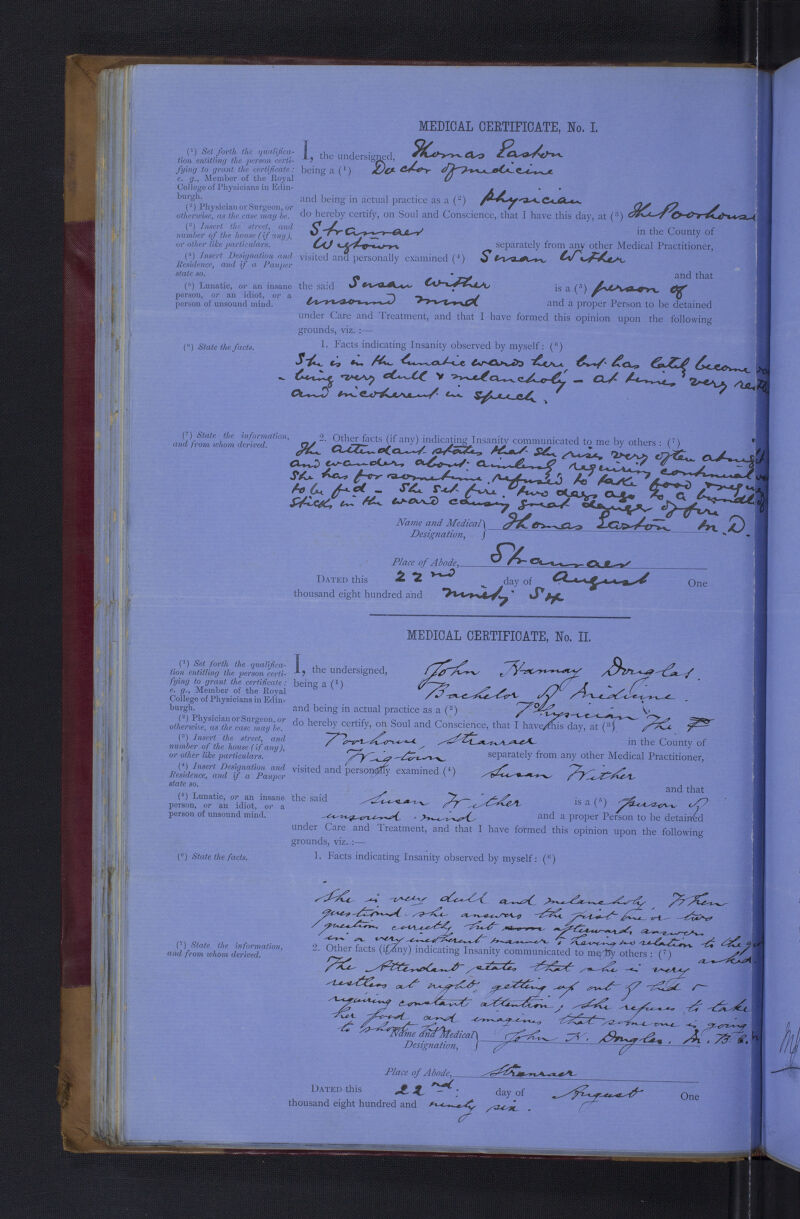 MEDICAL CERTIFICATE, No. I.
(1) Set forth the qualifica-
tion entitling the person certi-
fying to grant the certificate:
e. g., Member of the Royal
College of Physicians in Edin-
burgh.
I, the undersigned, Thomas Easton
being a (1) Doctor of medicine
(2) Physician or Surgeon, or
otherwise, as the case may be.
and being in actual practice as a (2) Physician
do hereby certify, on Soul and Conscience, that I have this day, at (3) The Poorhouse
(3) Insert the street, and
number of the house (if any),
or other like particulars.
Stranraer in the County of
Wigtown separately from any other Medical Practitioner,
(4) Insert Designation and
Residence, and if a Pauper
state so.
visited and personally examined (4) Susan Wither
and that
(5) Lunatic, or an insane
person, or an idiot, or a
person of unsound mind.
the said Susan Wither is a (5) person of
unsound mind and a proper Person to be detained
under Care and Treatment, and that I have formed this opinion upon the following
grounds, viz. :—
(6) State the facts.
1. Facts indicating Insanity observed by myself: (6)
She is in the lunatic wards here, but has lately become
being very dull & melancholy - at times very
and incoherent in speech.
(7) State the information,
and from whom derived.
2. Other facts (if any) indicating Insanity communicated to me by others: (7)
The attendant states that she rises very often at
and wanders about aimlessly requiring continual
She has for sometime refused to take food
to be fed - She set fire, two days ago to a bundle of
sticks in the ward causing great danger of fire
Name and Medical Designation, Thomas Easton M.D.
Place of Abode, Stranraer
DATED this 22nd day of August One
thousand eight hundred and ninety Six
MEDICAL CERTIFICATE, No. II.
(1) Set forth the qualifica-
tion entitling the person certi-
fying to grant the certificate:
e. g., Member of the Royal
College of Physicians in Edin-
burgh.
I, the undersigned, John Hannay Douglas.
being a (1) Bachelor of Medicine.
(2) Physician or Surgeon, or
otherwise, as the case may be.
and being in actual practice as a (2) Physician
do hereby certify, on Soul and Conscience, that I have this day, at (3) The
(3) Insert the street, and
number of the house (if any),
or other like particulars.
Poorhouse, Stranraer in the County of
Wigtown separately from any other Medical Practitioner,
(4) Insert Designation and
Residence, and if a Pauper
state so.
visited and personally examined (4) Susan Wither
and that
(5) Lunatic, or an insane
person, or an idiot, or a
person of unsound mind.
the said Susan Wither is a (5) person of
unsound mind and a proper Person to be detained
under Care and Treatment, and that I have formed this opinion upon the following
grounds, viz. :—
(6) State the facts.
1. Facts indicating Insanity observed by myself: (6)
She is very dull and melancholy. When
questioned she answers the first one or two
question correctly but soon afterwards answers
in a very incoherent manner & having no relation to the
asked.
(7) State the information,
and from whom derived.
2. Other facts (if any) indicating Insanity communicated to me by others: (7)
The Attendant states that she is very
restless at night, getting up out of bed &
requiring constant attention; She refuses to take
her food and imagines that some one is going
to shoot her.
Name and Medical Designation, John H. Douglas. M. B.
Place of Abode, Stranraer
DATED this 22nd. day of August One
thousand eight hundred and ninety six.